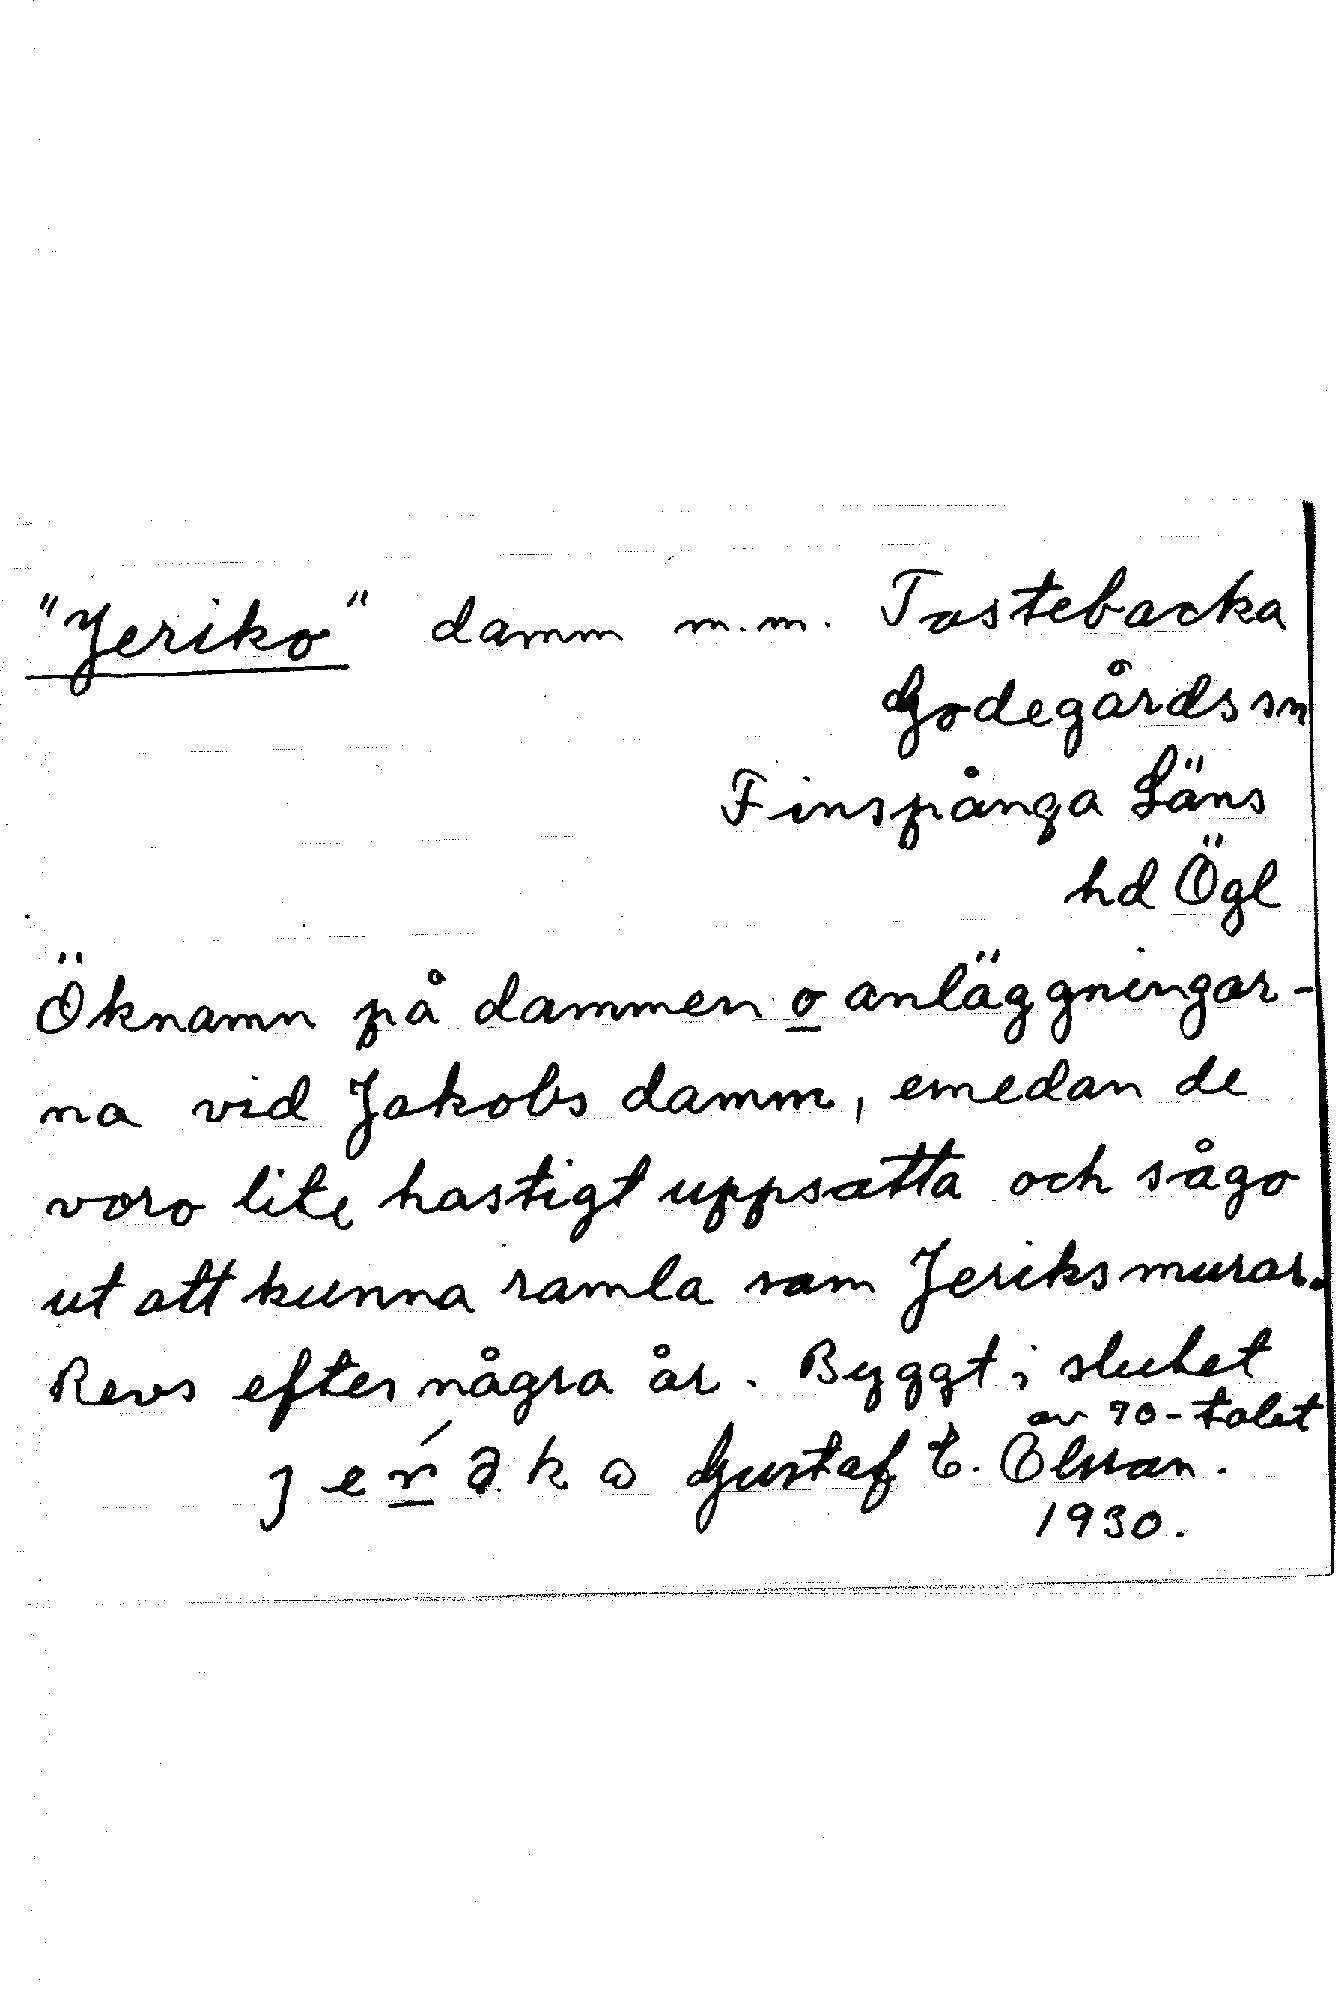 "Jeriko" damm m.m. Tostebacka
Godegårds sn
Finspånga Läns
hd Ögl
Öknamn på dammen o anläggningar-
na vid Jakobs damm, emedan de
voro lite hastigt uppsatta och sågo
ut att kunna ramla som Jeriks murar.
Revs efter några år. Byggt i slutet
av 90-talet
Gustaf E. Olsson.
1930.